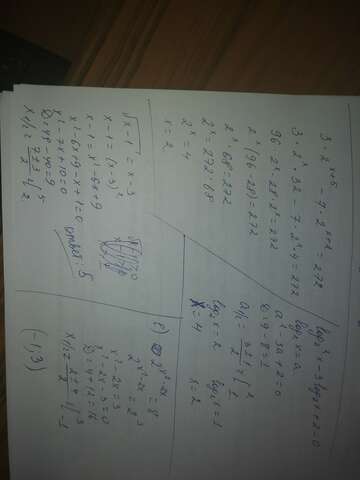 3 · 2^(x+5) - 7 · 2^(x+2) = 272
3 · 2^x · 32 - 7 · 2^x · 4 = 272
96 · 2^x - 28 · 2^x = 272
2^x (96 - 28) = 272
2^x · 68 = 272
2^x = 272 : 68
2^x = 4
x = 2
log₂² x - 3 log₂ x + 2 = 0
log₂ x = a
a² - 3a + 2 = 0
D = 9 - 8 = 1
a₁/₂ = (3 ± 1)/2 = { 2 1
log₂ x = 2 log₂ x = 1
x = 4 x = 2
√(x - 1) = x - 3
x - 1 = (x - 3)²
x - 1 = x² - 6x + 9
x² - 6x + 9 - x + 1 = 0
x² - 7x + 10 = 0
D = 49 - 40 = 9
x₁/₂ = (7 ± 3)/2 { 5 2
ответ: 5
2^(x² - 2x) = 8
2^(x² - 2x) = 2³
x² - 2x = 3
x² - 2x - 3 = 0
D = 4 + 12 = 16
x₁/₂ = (2 ± 4)/2 { 3 -1
(-1; 3)